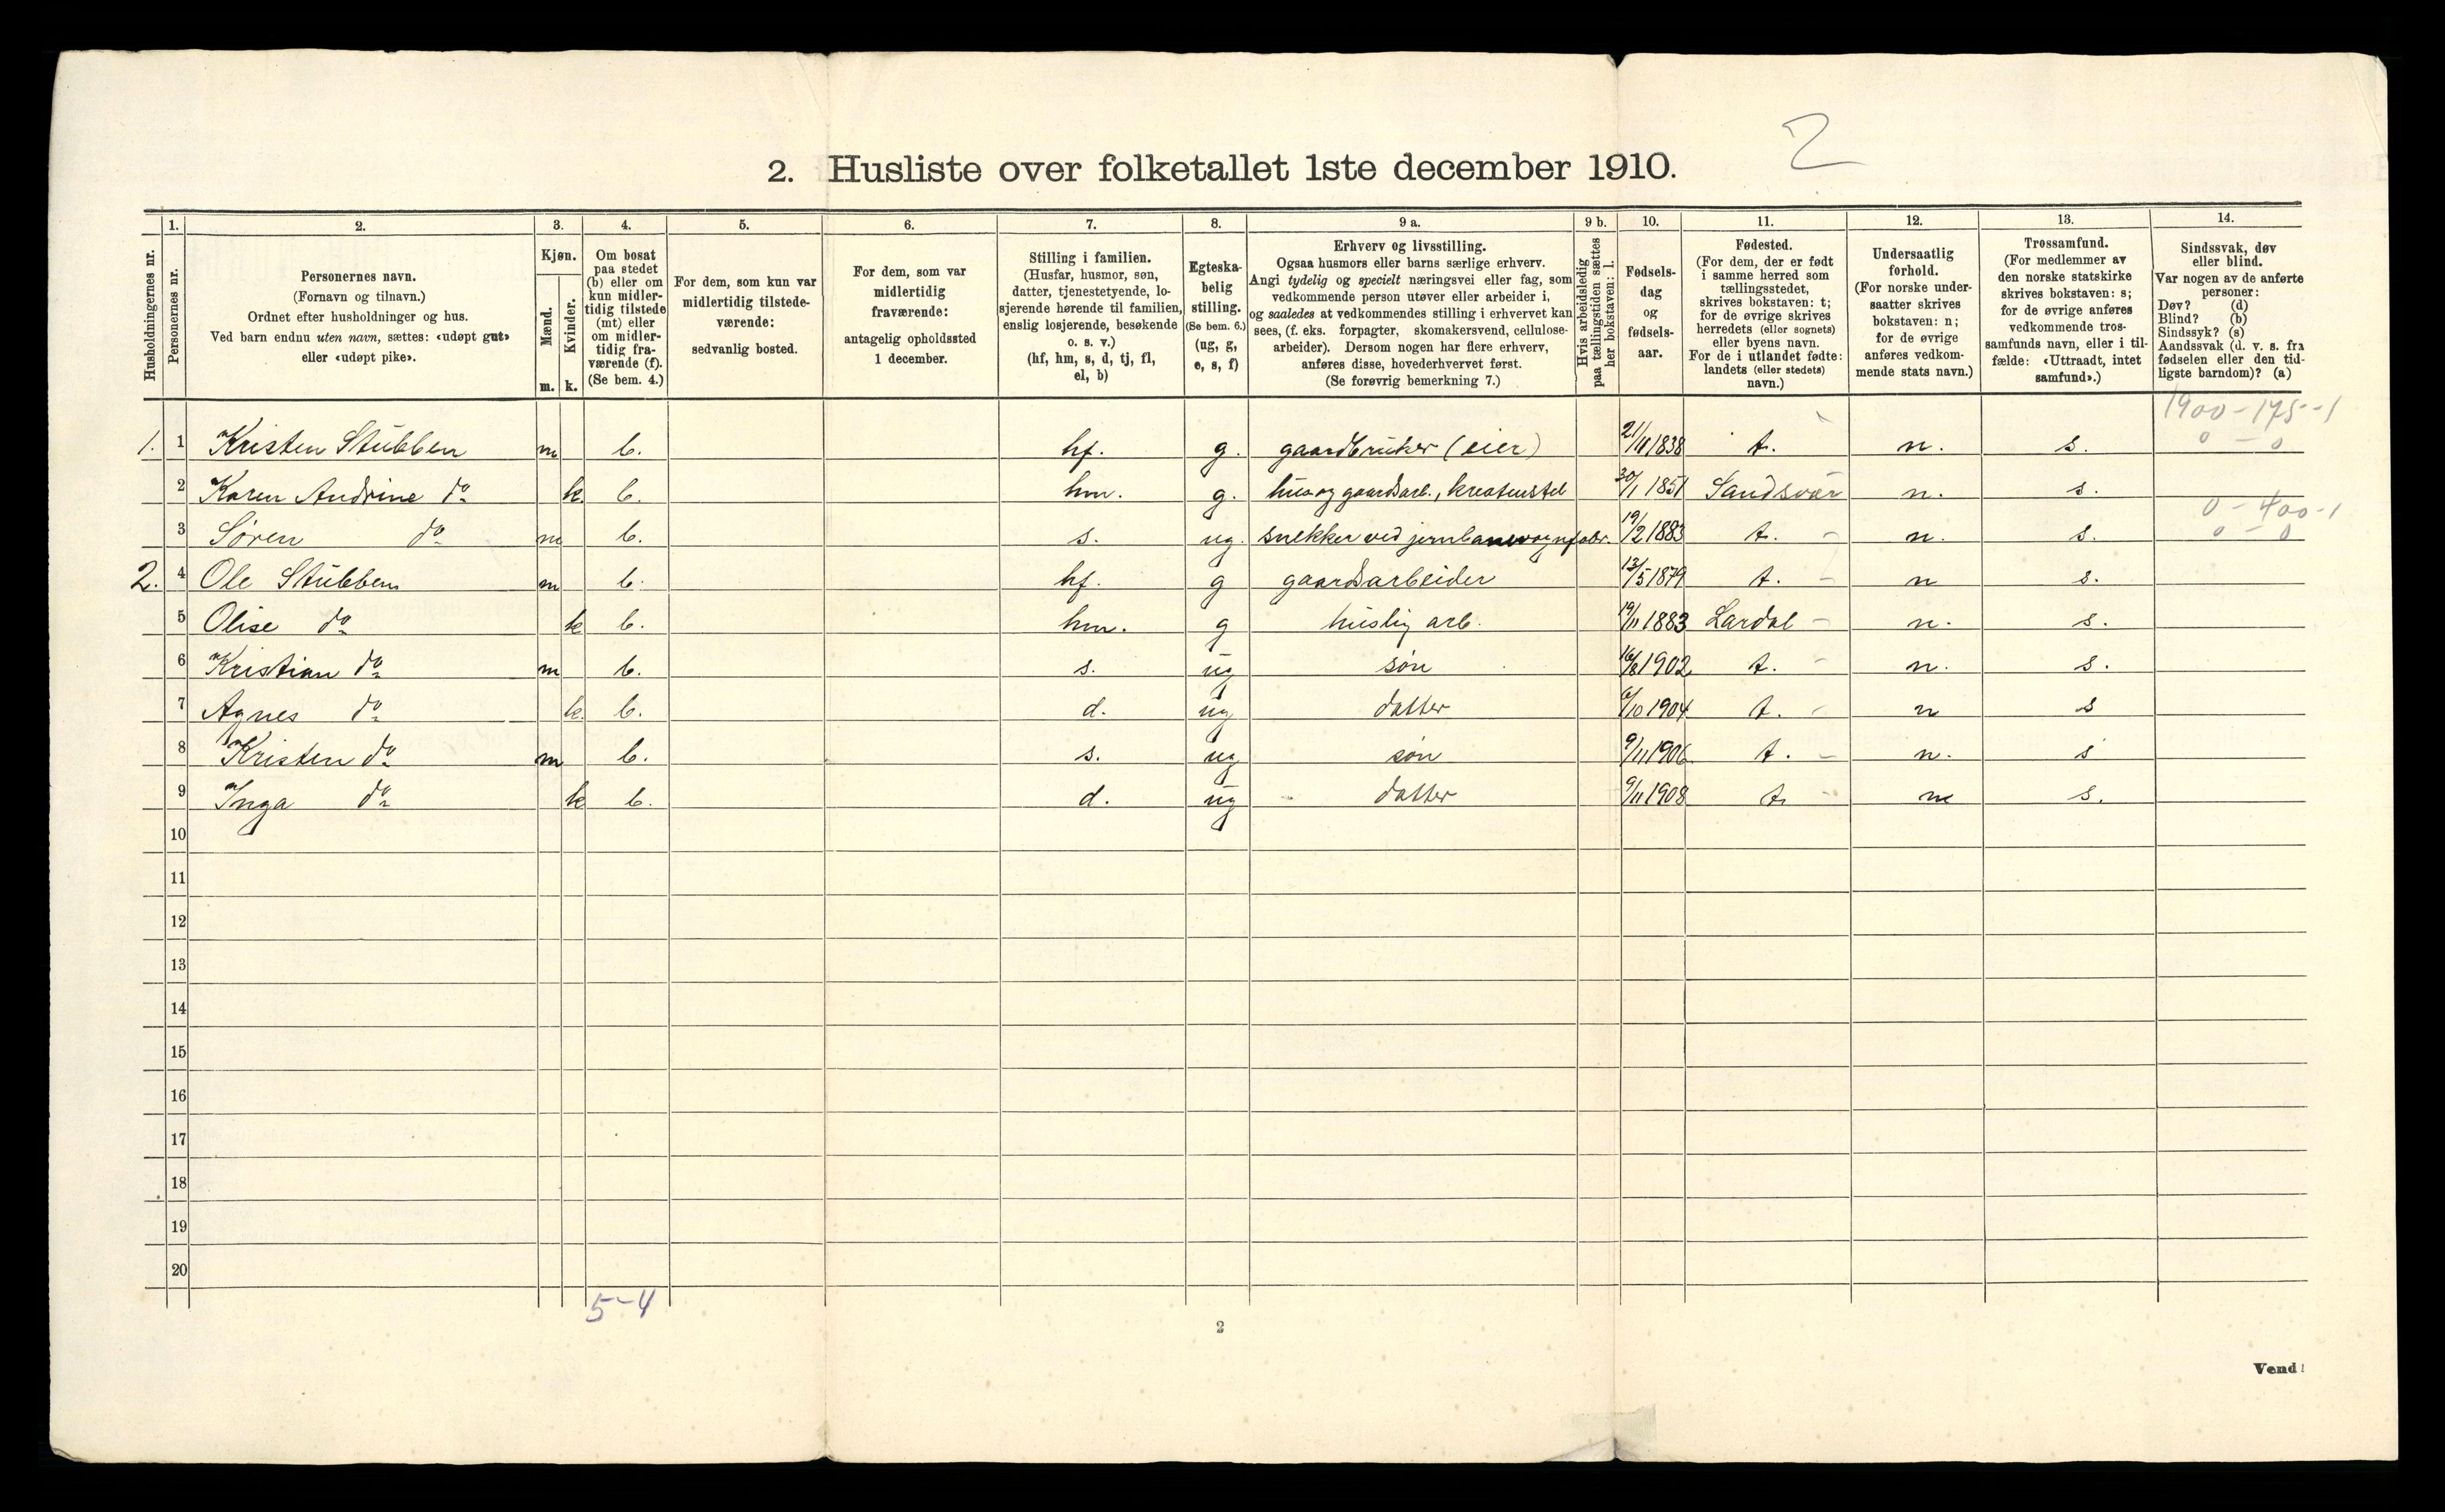 2
2. Husliste over folketallet 1ste december 1910.
1. 2. 3. 4. 5. 6. 7. 8. 9 a. 9 b. 10. 11. 12. 13. 14.
Husholdningernes nr.
Personernes nr.
Personernes navn.
(Fornavn og tilnavn.)
Ordnet efter husholdninger og hus.
Ved barn endnu uten navn, sættes: «udøpt gut»
eller «udøpt pike».
Kjøn.
Mænd.
m.
Kvinder.
k.
Om bosat
paa stedet
(b) eller om
kun midler-
tidig tilstede
(mt) eller
om midler-
tidig fra-
værende (f).
(Se bem. 4.)
For dem, som kun var
midlertidig tilstede-
værende:
sedvanlig bosted.
For dem, som var
midlertidig
fraværende:
antagelig opholdssted
1 december.
Stilling i familien.
(Husfar, husmor, søn,
datter, tjenestetyende, lo-
sjerende hørende til familien,
enslig losjerende, besøkende
o. s. v.)
(hf, hm, s, d, tj, fl,
el, b)
Egteska-
belig
stilling.
(Se bem. 6.)
(ug, g,
e, s, f)
Erhverv og livsstilling.
Ogsaa husmors eller barns særlige erhverv.
Angi tydelig og specielt næringsvei eller fag, som
vedkommende person utøver eller arbeider i,
og saaledes at vedkommendes stilling i erhvervet kan
sees, (f. eks. forpagter, skomakersvend, cellulose-
arbeider). Dersom nogen har flere erhverv,
anføres disse, hovederhvervet først.
(Se forøvrig bemerkning 7.)
Hvis arbeidsledig
paa tællingstiden sættes
her bokstaven: l.
Fødsels-
dag
og
fødsels-
aar.
Fødested.
(For dem, der er født
i samme herred som
tællingsstedet,
skrives bokstaven: t;
for de øvrige skrives
herredets (eller sognets)
eller byens navn.
For de i utlandet fødte:
landets (eller stedets)
navn.)
Undersaatlig
forhold.
(For norske under-
saatter skrives
bokstaven: n;
for de øvrige
anføres vedkom-
mende stats navn.)
Trossamfund.
(For medlemmer av
den norske statskirke
skrives bokstaven: s;
for de øvrige anføres
vedkommende tros-
samfunds navn, eller i til-
fælde: «Uttraadt, intet
samfund».)
Sindssvak, døv
eller blind.
Var nogen av de anførte
personer:
Døv? (d)
Blind? (b)
Sindssyk? (s)
Aandssvak (d. v. s. fra
fødselen eller den tid-
ligste barndom)? (a)
1900-175-1
1. 1 Kristen Stubben m b. hf. g. gaardbruker (eier) 21/11 1838 t. n. s. 0 - 0
2 Karen Andrine do k. b. hm. g. hus og gaardsarb., kreaturstel 30/1 1851 Sandsvær n. s.
0-400-1
3 Søren do m b. s. ug. snekker ved jernbanevognfabr. 19/2 1883 t. - n. s. 0 - 0
2. 4 Ole Stubben m b. hf. g gaardsarbeider 13/5 1879 t. - n s.
5 Olise do k b. hm. g huslig arb. 19/11 1883 Lardal - n. s.
6 Kristian do m b. s. ug søn 16/8 1902 t. - n. s.
7 Agnes do k. b. d. ug datter 6/10 1904 t. - n s
8 Kristen do m b. s. ug søn 9/11 1906 t. - n. s
9 Inga do k b. d. ug datter 9/11 1908 t. - n s.
10
11
12
13
14
15
16
17
18
19
20
5-4
2
Vend!